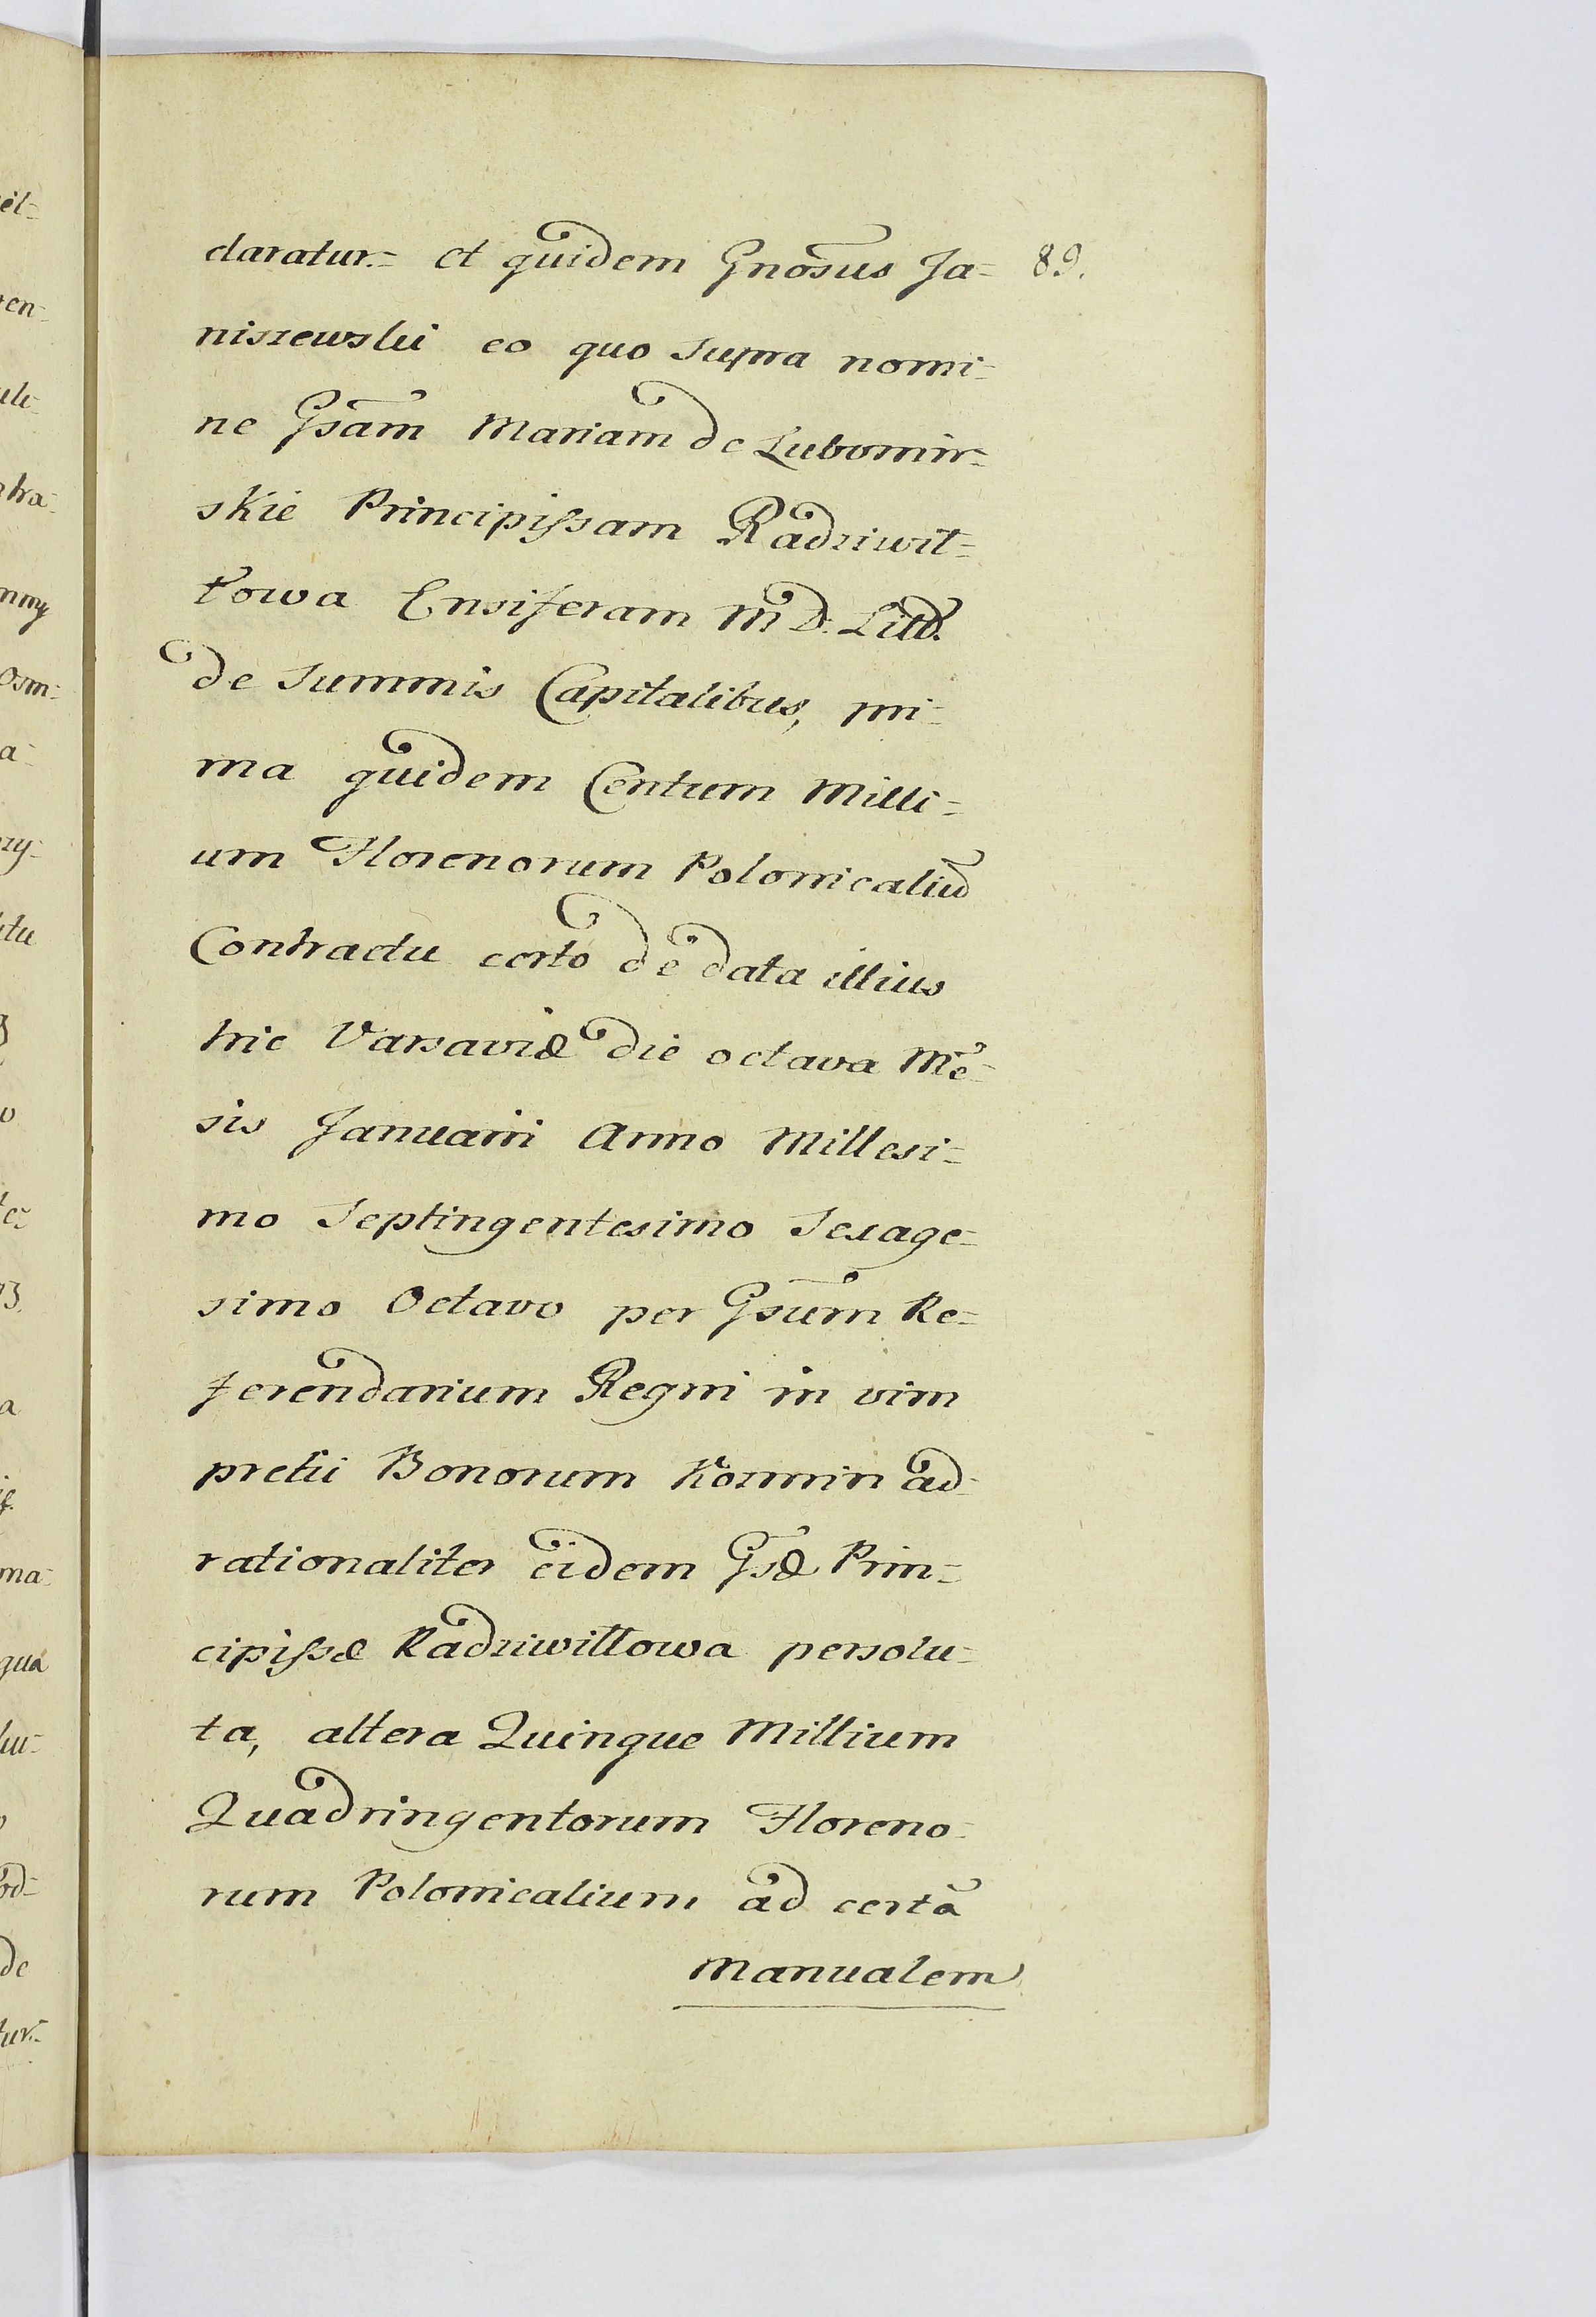 claratur.= et quidem Gnõsus Ja= 89.
niszewski eo quo supra nomi=
ne Gsãm Mariam de Lubomir=
skie Principissam Radziwił=
łowa Ensiferam M D. Litt.
de Summis Capitalibus, pri=
ma quidem Centum Milli=
um Florenorum Polonicaliũ
Contractu certo de data illius
hic Varsaviæ die octava Mẽ=
sis Januarii Anno Millesi=
mo Septingentesimo Sexage=
simo Octavo per Gsũm Re=
ferendarium Regni in vim
pretii Bonorum Kozmin ad=
rationaliter eidem Gsæ Prin=
cipissæ Radziwiłłowa persolu=
ta, altera Quinque Millium
Quadringentorum Floreno=
rum Polonicalium ad certã
Manualem